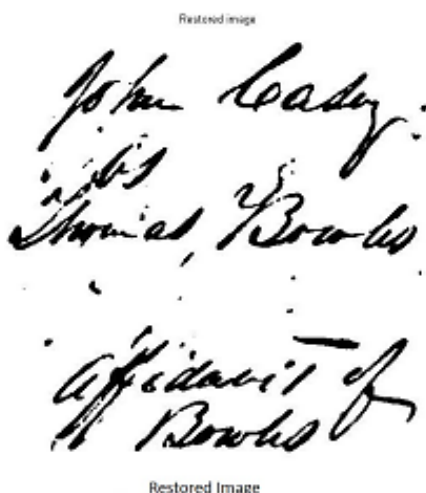 Restored image
John Casey
vs
Thomas Bowles
Affidavit of
Bowles
Restored Image